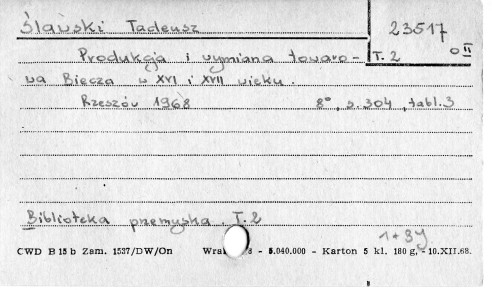 Ślawski Tadeusz
23517
Produkcja i wymiana towaro-
T. 2
O II
wa Biecza w XVI i XVII wieku.
Rzeszów 1968 8°, s. 304, tabl. 3
Biblioteka przemyska. T. 2
1+8y
CWD B 15 b Zam. 1537/DW/On - 5.040.000 - Karton 5 kl. 180 g, - 10.XII.68.